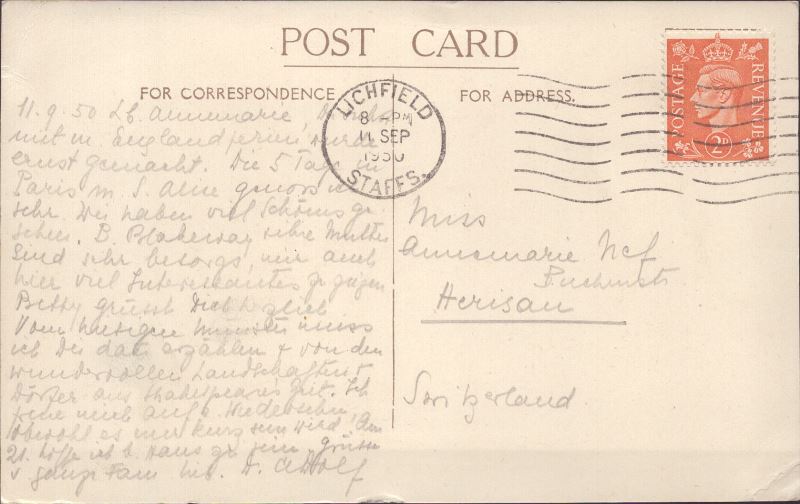 POST CARD
FOR CORRESPONDENCE
FOR ADDRESS.
LICHFIELD
8 - PM
11 SEP
1950
STAFFS.
POSTAGE
REVENUE
2D
11.9.50 Lb. Annemarie,
mit m. Englandferien wurde
ernst gemacht. Die 5 Tage in
Paris m. S. genoss ich
sehr. Wir haben viel Schönes ge-
sehen. B. Blakeway, ihre Mutter
sind sehr besorgt, mir auch
hier viel Interessantes zu zeigen
Betty grüsst Dich herzlich
Vom hiesigen Münster muss
ich Dir dann erzählen & von den
wundervollen Landschaften
Dörfer aus Shakespeares Zeit. Ich
freue mich auf d. Wiedersehen,
obwohl es nur kurz sein wird, Am
21. hoffe ich b. Hans zu sein, grüsse
d. ganze Fam D. Adolf
Miss
Annemarie Nef
Herisau
Switzerland